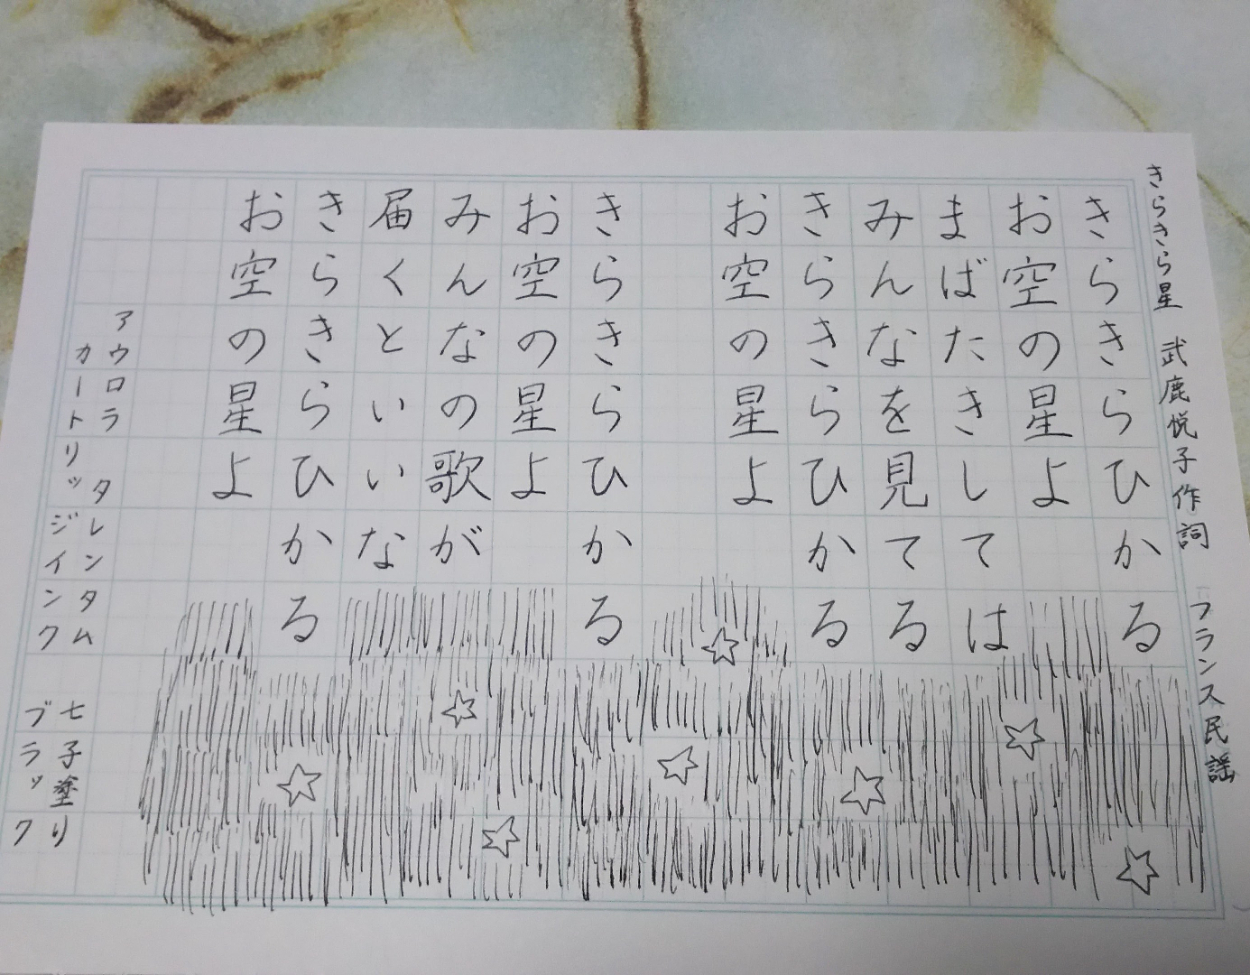 きらきら星 武鹿悦子作詞 フランス民謡
きらきらひかる
お空の星よ
まばたきしては
みんなを見てる
きらきらひかる
お空の星よ
きらきらひかる
お空の星よ
みんなの歌が
届くといいな
きらきらひかる
お空の星よ
アウロラ タレンタム 七子塗り
カートリッジインク ブラック